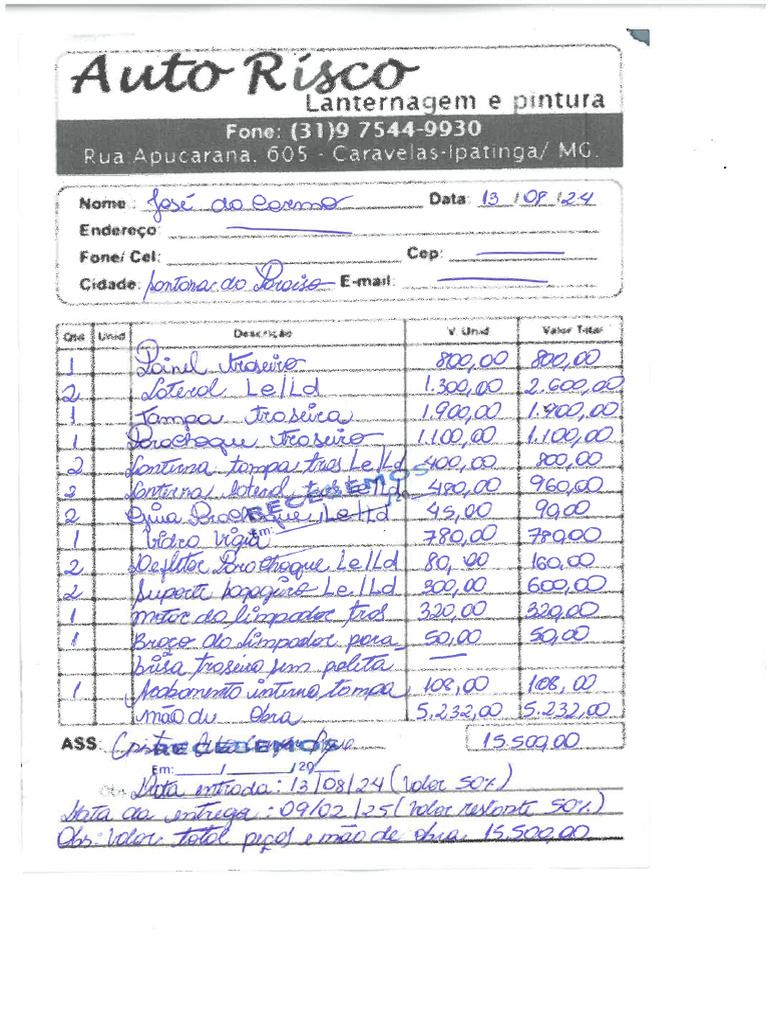 Auto Risco
Lanternagem e pintura
Fone: (31)9 7544-9930
Rua Apucarana, 605 - Caravelas-Ipatinga/ MG.
Nome: José do Carmo Data: 13/08/24
Endereço:
Fone/ Cel: Cep:
Cidade: Santana do Paraíso E-mail:
Qtd Unid Descrição V. Unid Valor Total
1 Painel traseiro 800,00 800,00
2 Lateral Le/Ld 1.300,00 2.600,00
1 Tampa traseira 1.900,00 1.900,00
1 Parachoque traseiro 1.100,00 1.100,00
2 Lanterna tampa tras Le/Ld 400,00 800,00
2 Lanterna lateral tras Le/Ld 480,00 960,00
2 Guia Parachoque Le/Ld 45,00 90,00
1 Vidro Vigia 780,00 780,00
2 Defletor Parachoque Le/Ld 80,00 160,00
2 Suporte bagageiro Le/Ld 300,00 600,00
1 Motor do limpador tras 320,00 320,00
1 Braço do limpador para 50,00 50,00
brisa traseiro sem paleta
1 Acabamento interno tampa 108,00 108,00
mão de obra 5.232,00 5.232,00
RECEBEMOS
Em:
ASS: 15.500,00
RECEBEMOS
Em: ____/____/20
Data entrada: 13/08/24 (Valor 50%)
Data da entrega: 09/02/25 (Valor restante 50%)
Obs: Valor total peças e mão de obra 15.500,00